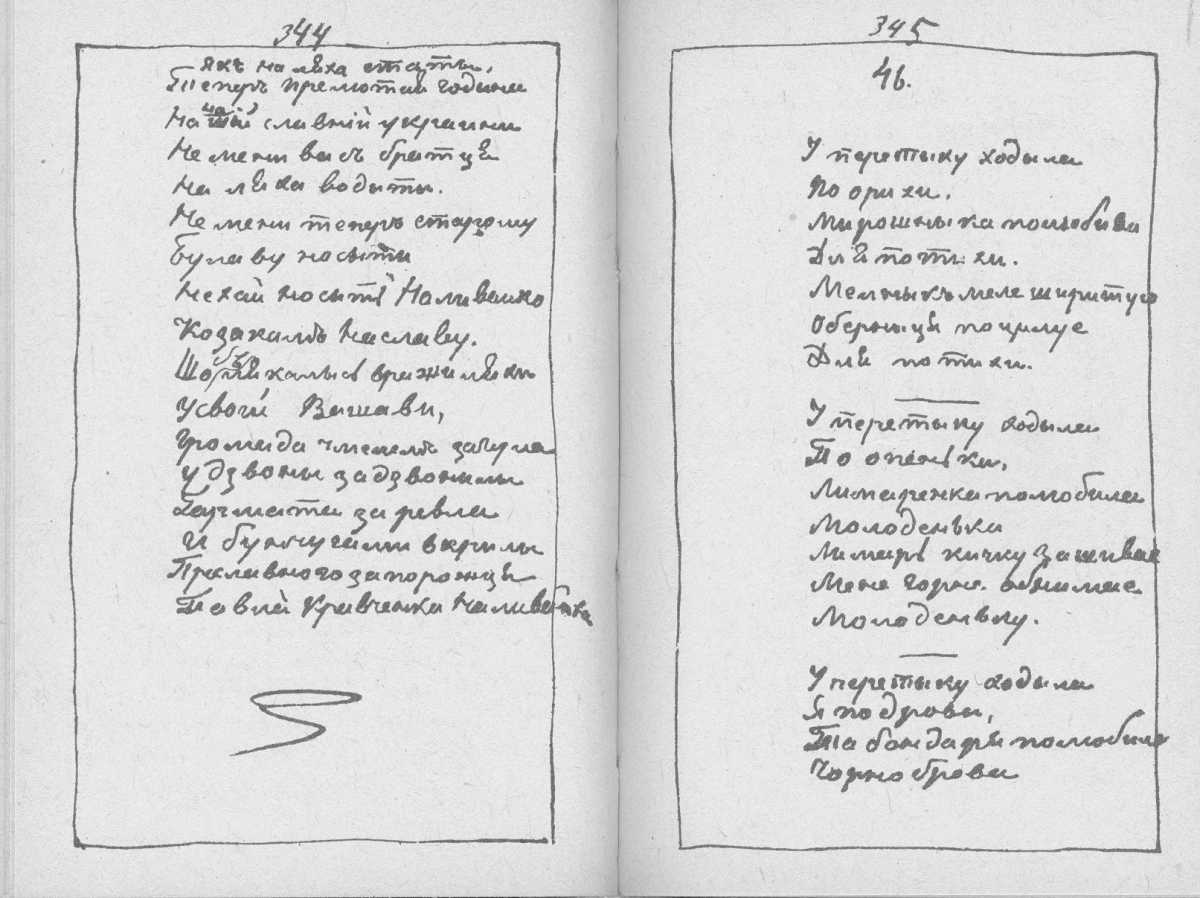 344
Якъ на ляха статы,
Теперъ прелютая година
На нашій славній украини
Не мени васъ братця
На ляха водыты.
Не мени теперъ старому
Булаву носыти
Нехай носыть Наливайко
Козакамъ на славу.
Щобъ лякалысь вражи ляхи
У своїй Варшави,
Громада чмелемъ загула
У дзвоны задзвонылы
Гарматы заревли
И бунчугами вкрылы
Преславного запорожця
Павла Кравченка Наливайка
345
46.
У перетыку ходыла
По орихи.
Мирошныка полюбила
Для потихи.
Мельныкъ меле шеритує
Обернеця поцилує
Для потихи.
У перетыку ходыла
По опеньки,
Лимаренка полюбила
Молоденька
Лимаръ кичку зашиває
Мене горне. обнимає
Молоденьку.
У перетыку ходыла
Я по дрова,
Та бондаря полюбила
Чорноброва